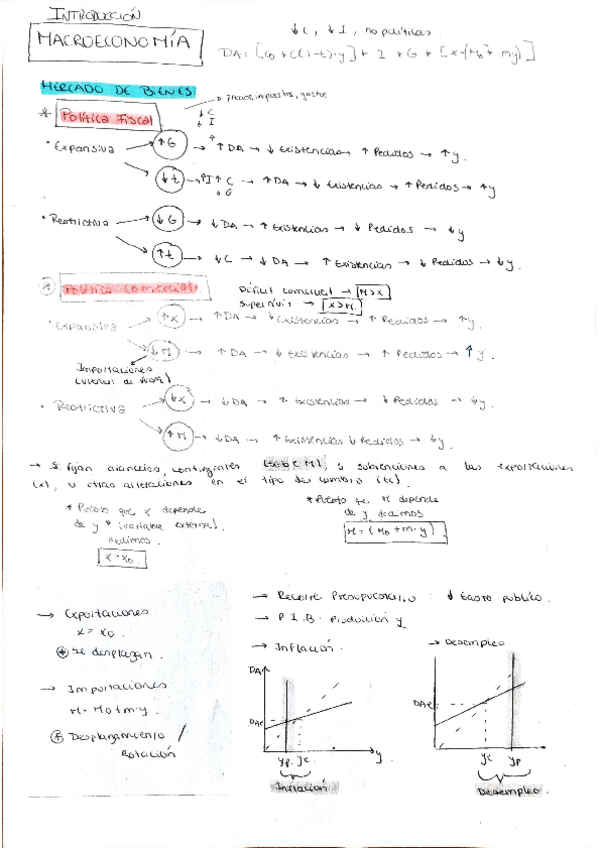 INTRODUCCIÓN
MACROECONOMÍA
↓C, ↓I, no políticas
DA: [C0 + C(1-t)·y] + I + G + [X-(M0 + my)]
MERCADO DE BIENES
* Política Fiscal
→ Precios, impuestos, gastos
↓ C
↓ I
• Expansiva → ↑G → ↑ DA → ↓ Existencias → ↑ Pedidos → ↑y.
↓t → ↑ C → ↑ DA → ↓ Existencias → ↑ Pedidos → ↑y
• Restrictiva → ↓G → ↓ DA → ↑ Existencias → ↓ Pedidos → ↓y
↑t → ↓ C → ↓ DA → ↑ Existencias → ↓ Pedidos → ↓y.
* Política comercial
Déficit comercial → M>X
Superávit → X>M
• Expansiva → ↑X → ↑ DA → ↓ Existencias → ↑ Pedidos → ↑y.
↓M → ↑ DA → ↓ Existencias → ↑ Pedidos → ↑y.
Importaciones
• Restrictiva → ↓X → ↓ DA → ↑ Existencias → ↓ Pedidos → ↓y.
↑M → ↓DA → ↑ Existencias ↓ Pedidos → ↓y.
→ Se fijan aranceles, contingentes (sobre M), o subvenciones a las exportaciones
(x), u otras alteraciones en el tipo de cambio (tc).
* Puesto que X depende
de y* (variable externa)
X=X0
* Puesto que M depende
de y decimos
M=(M0+m·y)
→ Exportaciones
X= X0.
* Se desplazan.
→ Importaciones
M= M0+m·y
* Desplazamiento /
Rotación
→ Recorte Presupuestario ↓ Gasto público.
→ P.I.B. Producción y
→ Inflación.
DA
DAe
yp ye y
Inflación
→ Desempleo
DAe
ye yp
Desempleo.